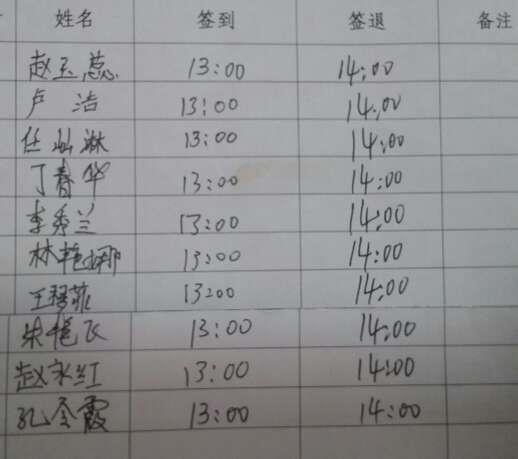 姓名 签到 签退 备注
赵玉蕊 13:00 14:00
卢洁 13:00 14:00
任灿淋 13:00 14:00
丁春华 13:00 14:00
李秀兰 13:00 14:00
林艳娜 13:00 14:00
王琴菲 13:00 14:00
朱艳飞 13:00 14:00
赵永红 13:00 14:00
孔令霞 13:00 14:00